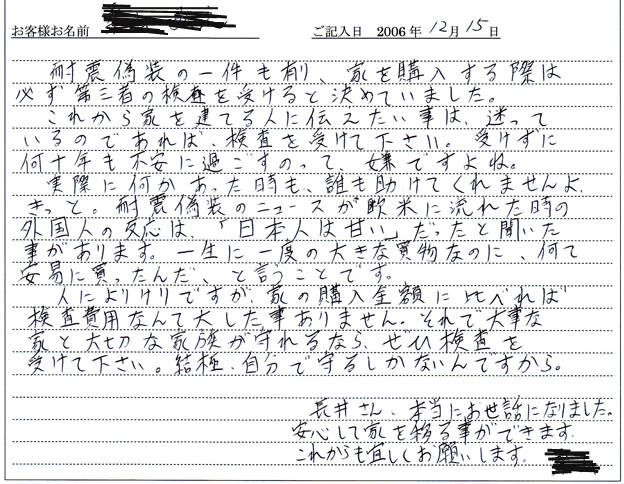 お客様お名前 ご記入日 2006年 12月 15日
耐震偽装の一件も有り、家を購入する際は
必ず第三者の検査を受けると決めていました。
これから家を建てる人に伝えたい事は、迷って
いるのであれば、検査を受けて下さい。受けずに
何十年も不安に過ごすのって、嫌ですよね。
実際に何かあった時も、誰も助けてくれませんよ、
きっと。耐震偽装のニュースが欧米に流れた時の
外国人の反応は、「日本人は甘い」だったと聞いた
事があります。一生に一度の大きな買物なのに、何て
安易に買ったんだ、と言うことです。
人によりけりですが、家の購入金額に比べれば
検査費用なんて大した事ありません。それで大事な
家と大切な家族が守れるなら、ぜひ検査を
受けて下さい。結極、自分で守るしかないんですから。
長井さん、本当にお世話になりました。
安心して家を移る事ができます。
これからも宜しくお願いします。